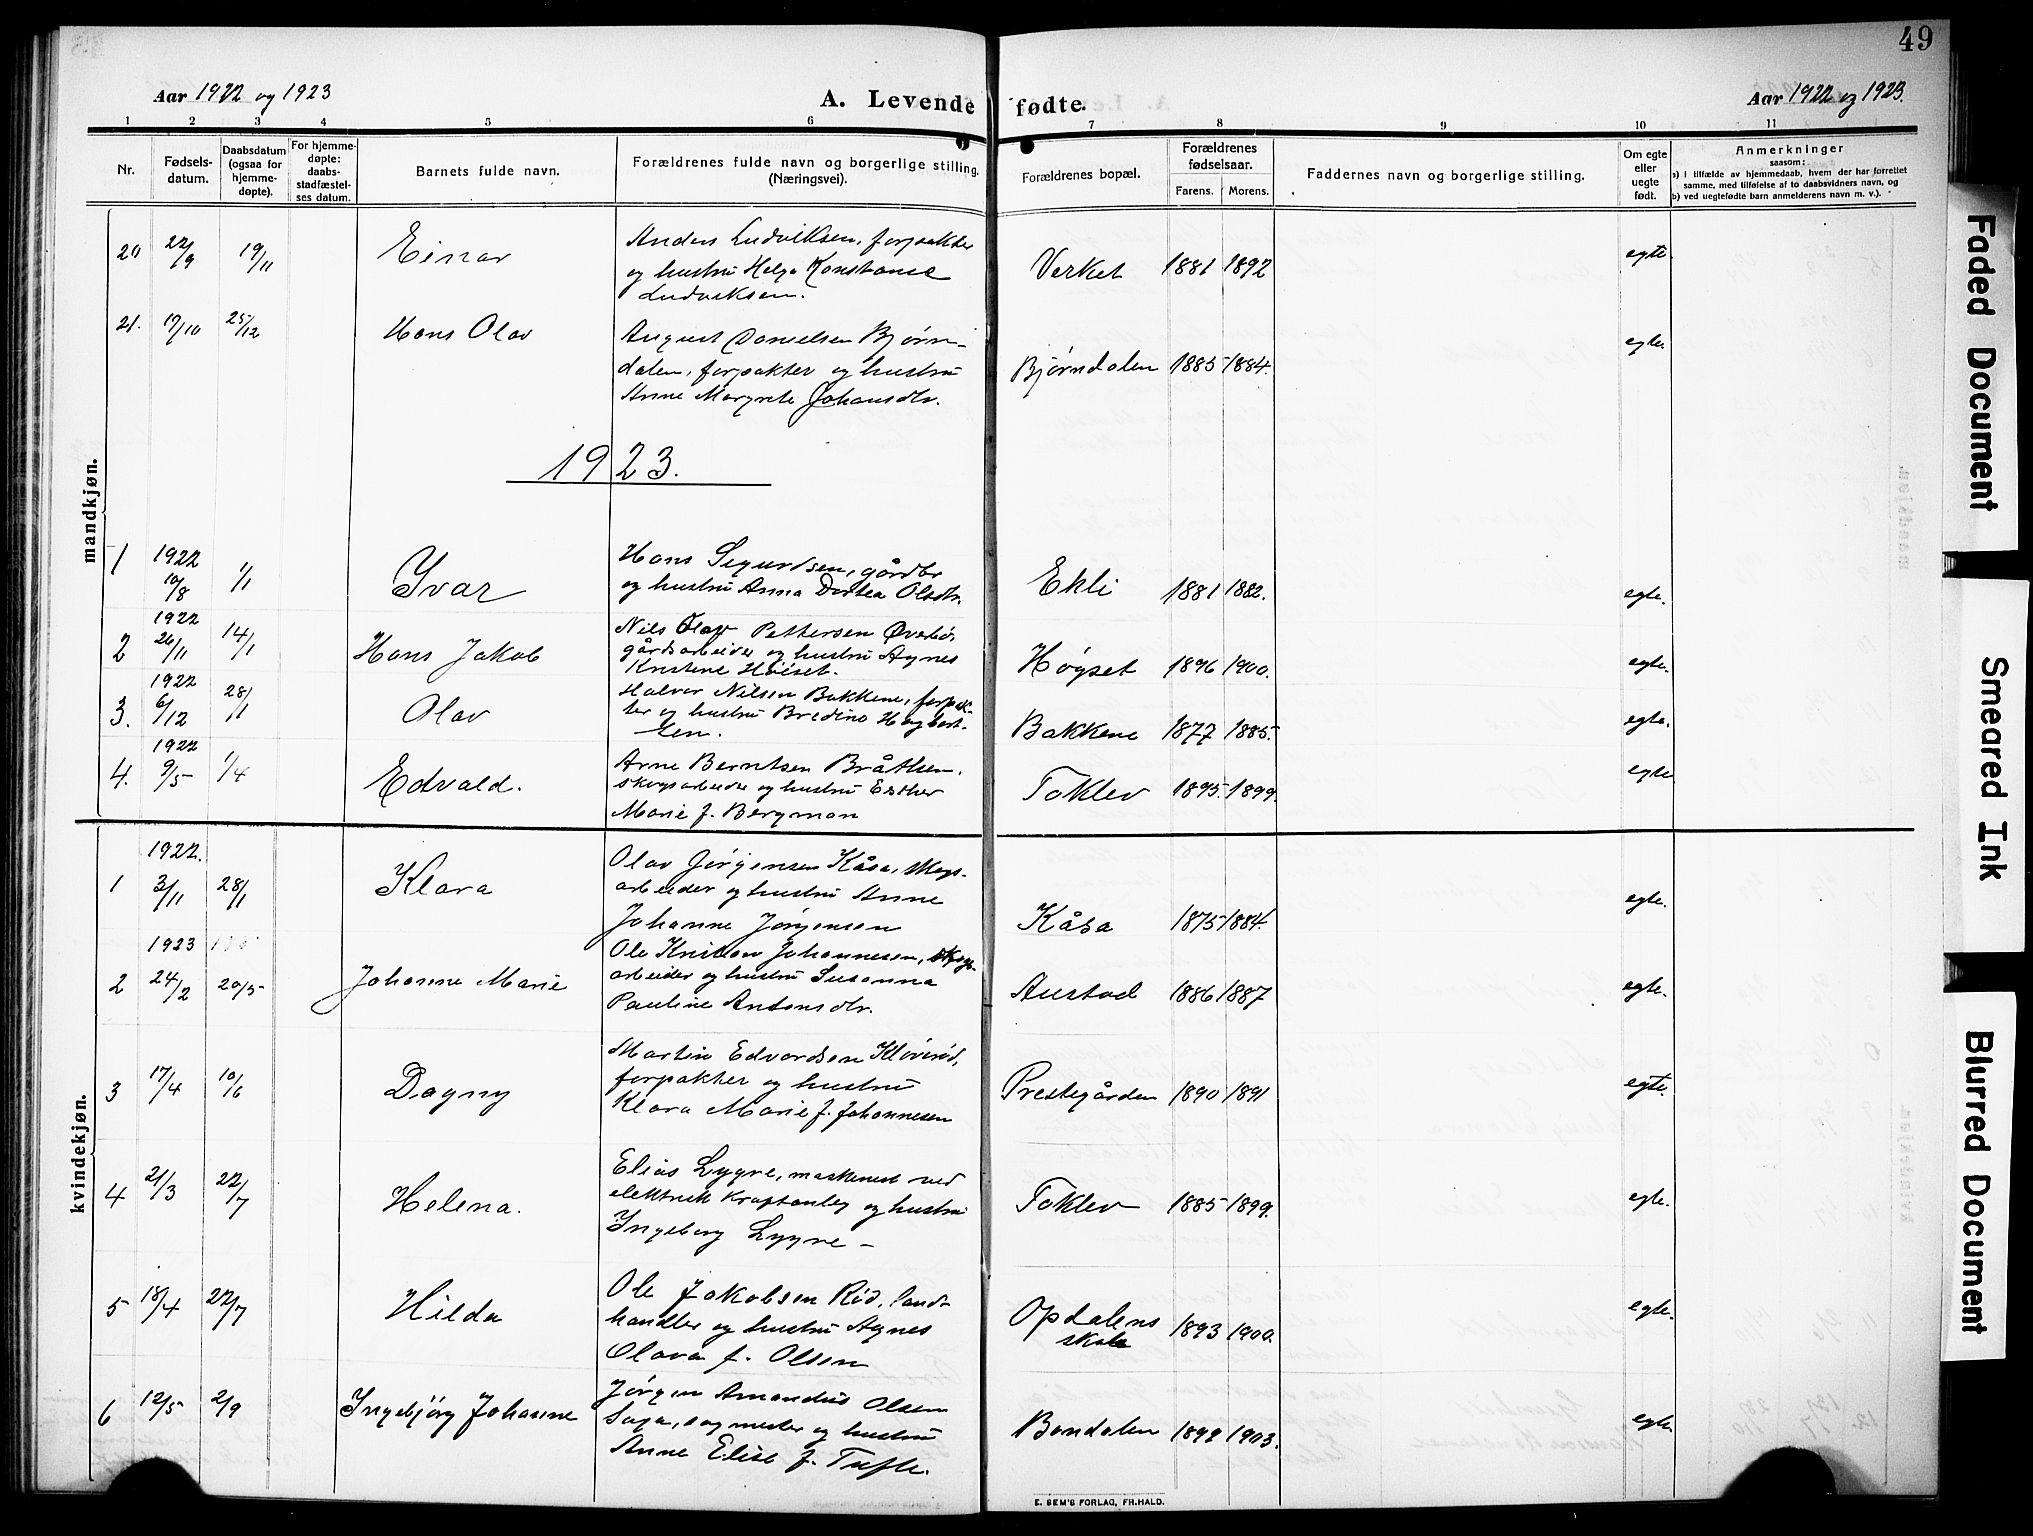 49
Aar 1922 og 1923
A. Levende fødte.
Aar 1922 og 1923.
1 2 3 4 5 6 7 8 9 10 11
Nr.
Fødsels-
datum.
Daabsdatum
(ogsaa for
hjemme-
døpte).
For hjemme-
døpte:
daabs-
stadfæstel-
ses datum.
Barnets fulde navn.
Forældrenes fulde navn og borgerlige stilling.
(Næringsvei).
Forældrenes bopæl.
Forældrenes
fødselsaar.
Farens. Morens.
Faddernes navn og borgerlige stilling.
Om egte
eller
uegte
født.
Anmerkninger
saasom:
a) i tilfælde av hjemmedaab, hvem der har forrettet
samme, med tilføielse af to daabsvidners navn, og
b) ved uegtefødte barn anmelderens navn m. v.).
mandkjøn.
20 22/9 19/11 Einar Anders Ludviksen, forpakter
og hustru Helga Konstanse
Ludviksen.
Verket 1881 1892 egte.
21. 17/10 25/12 Hans Olav August Danielsen Bjørn-
dalen, forpakter og hustru
Anne Margrete Johansdtr.
Bjørndalen 1885 1884. egte.
1923.
1 1922 10/8 1/1 Ivar Hans Sigurdsen, gårdbr
og hustru Anna Dortea Olsdtr.
Ekli 1881 1882. egte.
2 1922 26/11 14/1 Hans Jakob Nils Olav Pettersen Øverbø,
gårdsarbeider og hustru Agnes
Kristine Høiset.
Høgset 1896 1900. egte.
3. 1922 6/12 28/1 Olav Halvor Nilsen Bakkene, forpak-
ter og hustru Bredine Haugbart-
len.
Bakkene 1877 1885. egte.
4. 1922 9/5 1/4 Edvald. Arne Berntsen Bråthen,
skogsarbeider og hustru Esther
Marie f. Bergman
Toklev 1895. 1899. egte
kvindekjøn.
1 1922. 3/11 28/1 Klara Olav Jørgensen Kåsa, skogs-
arbeider og hustru Anne
Johanne Jørgensen
Kåsa 1875 1884. egte.
2 1923 24/2 20/5 Johanne Marie Ole Kristian Johannesen, skogs-
arbeider og hustru Susanna
Pauline Antonsdtr.
Austad 1886 1887 egte.
3 17/4 10/6 Dagny Martin Edvardsen Kløverød,
forpakter og hustru
Klara Marie f. Johannesen
Prestegården 1890 1891 egte.
4 21/3 22/7 Helena. Elias Lygre, maskinist ved
elektrisk kraftanleg og hustru
Ingeborg Lygre –
Toklev 1885 1899. egte.
5 18/4 22/7 Hilda Ole Jakobsen Rød, land-
handler og hustru Agnes
Olava f. Olsen
Opdalens
skole
1893 1900. egte.
6 12/5 2/9 Ingebjörg Johanne Jørgen Amandus Olsen
Saga, sagmester og hustru
Anne Elise f. Tufte.
Bondalen 1892 1903. egte.
E. SEM'S FORLAG, FR.HALD.
Faded Document
Smeared Ink
Blurred Document